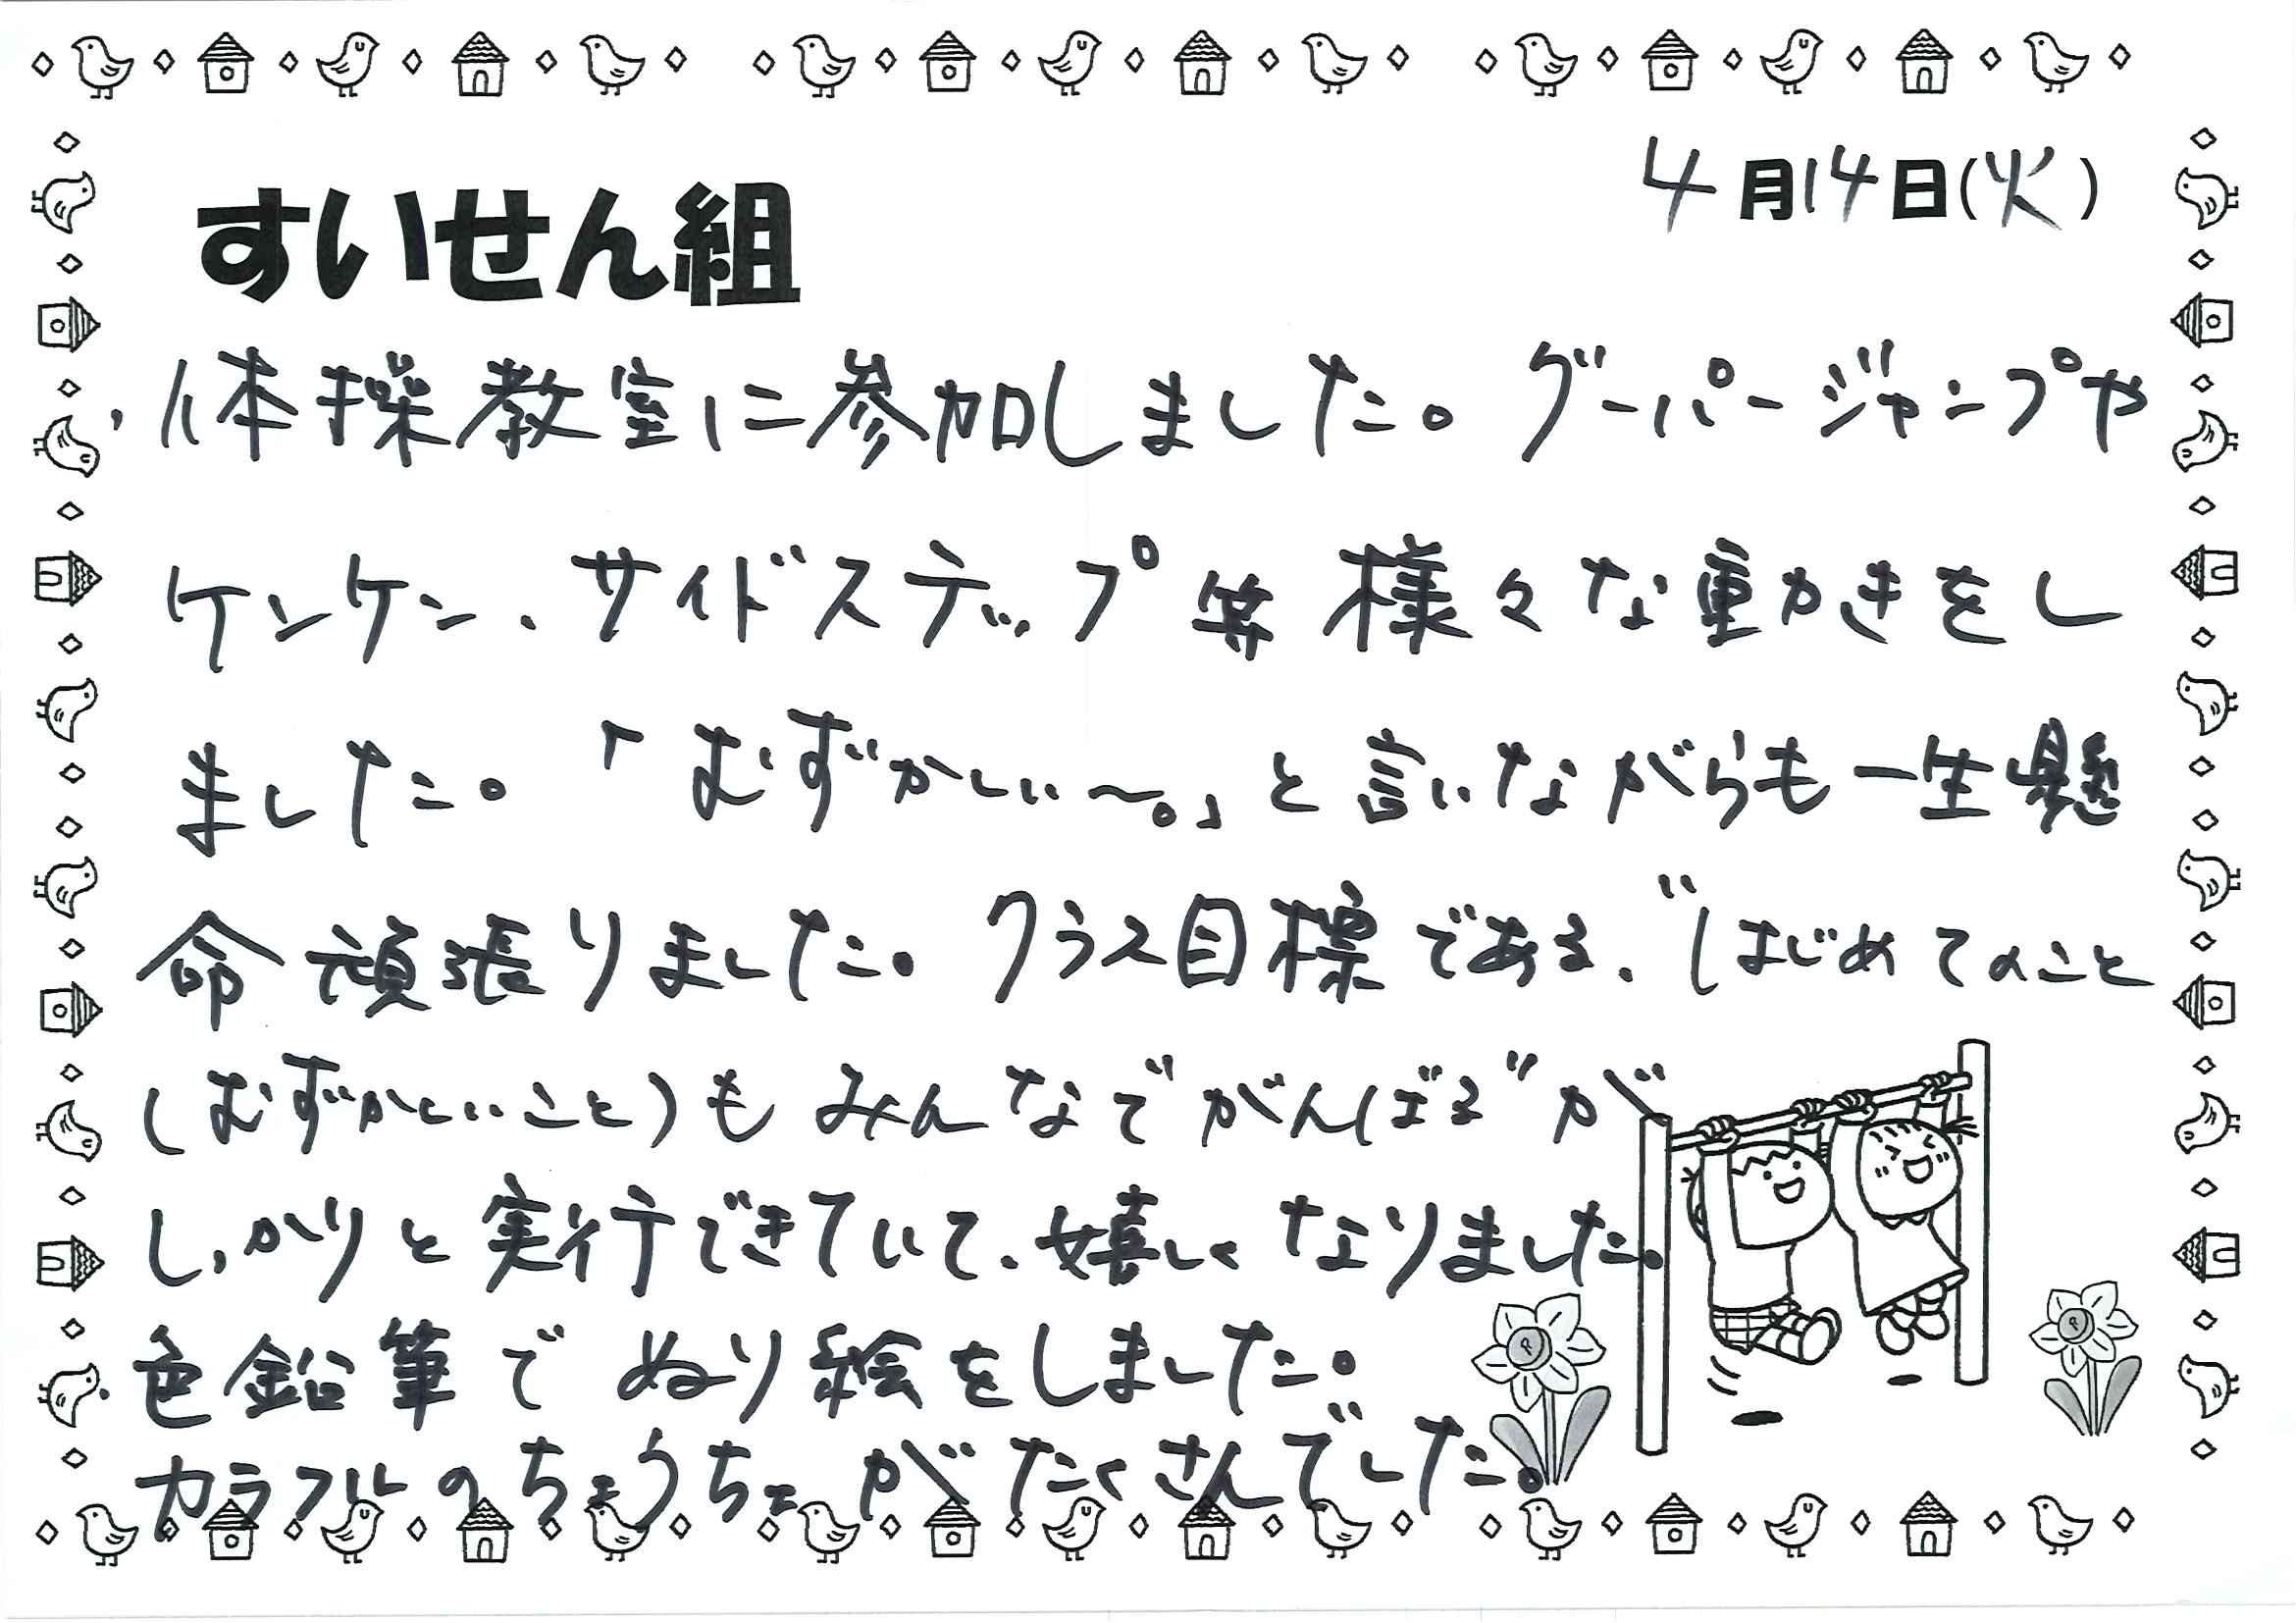 4月14日(火)
すいせん組
・体操教室に参加しました。グーパージャンプや
ケンケン、サイドステップ等様々な動きをし
ました。「むずかしい〜。」と言いながらも一生懸
命頑張りました。クラス目標である、"はじめてのこと
(むずかしいこと)もみんなでがんばる"が
しっかりと実行できていて、嬉しくなりました。
・色鉛筆でぬり絵をしました。
カラフルのちょうちょがたくさんでした。